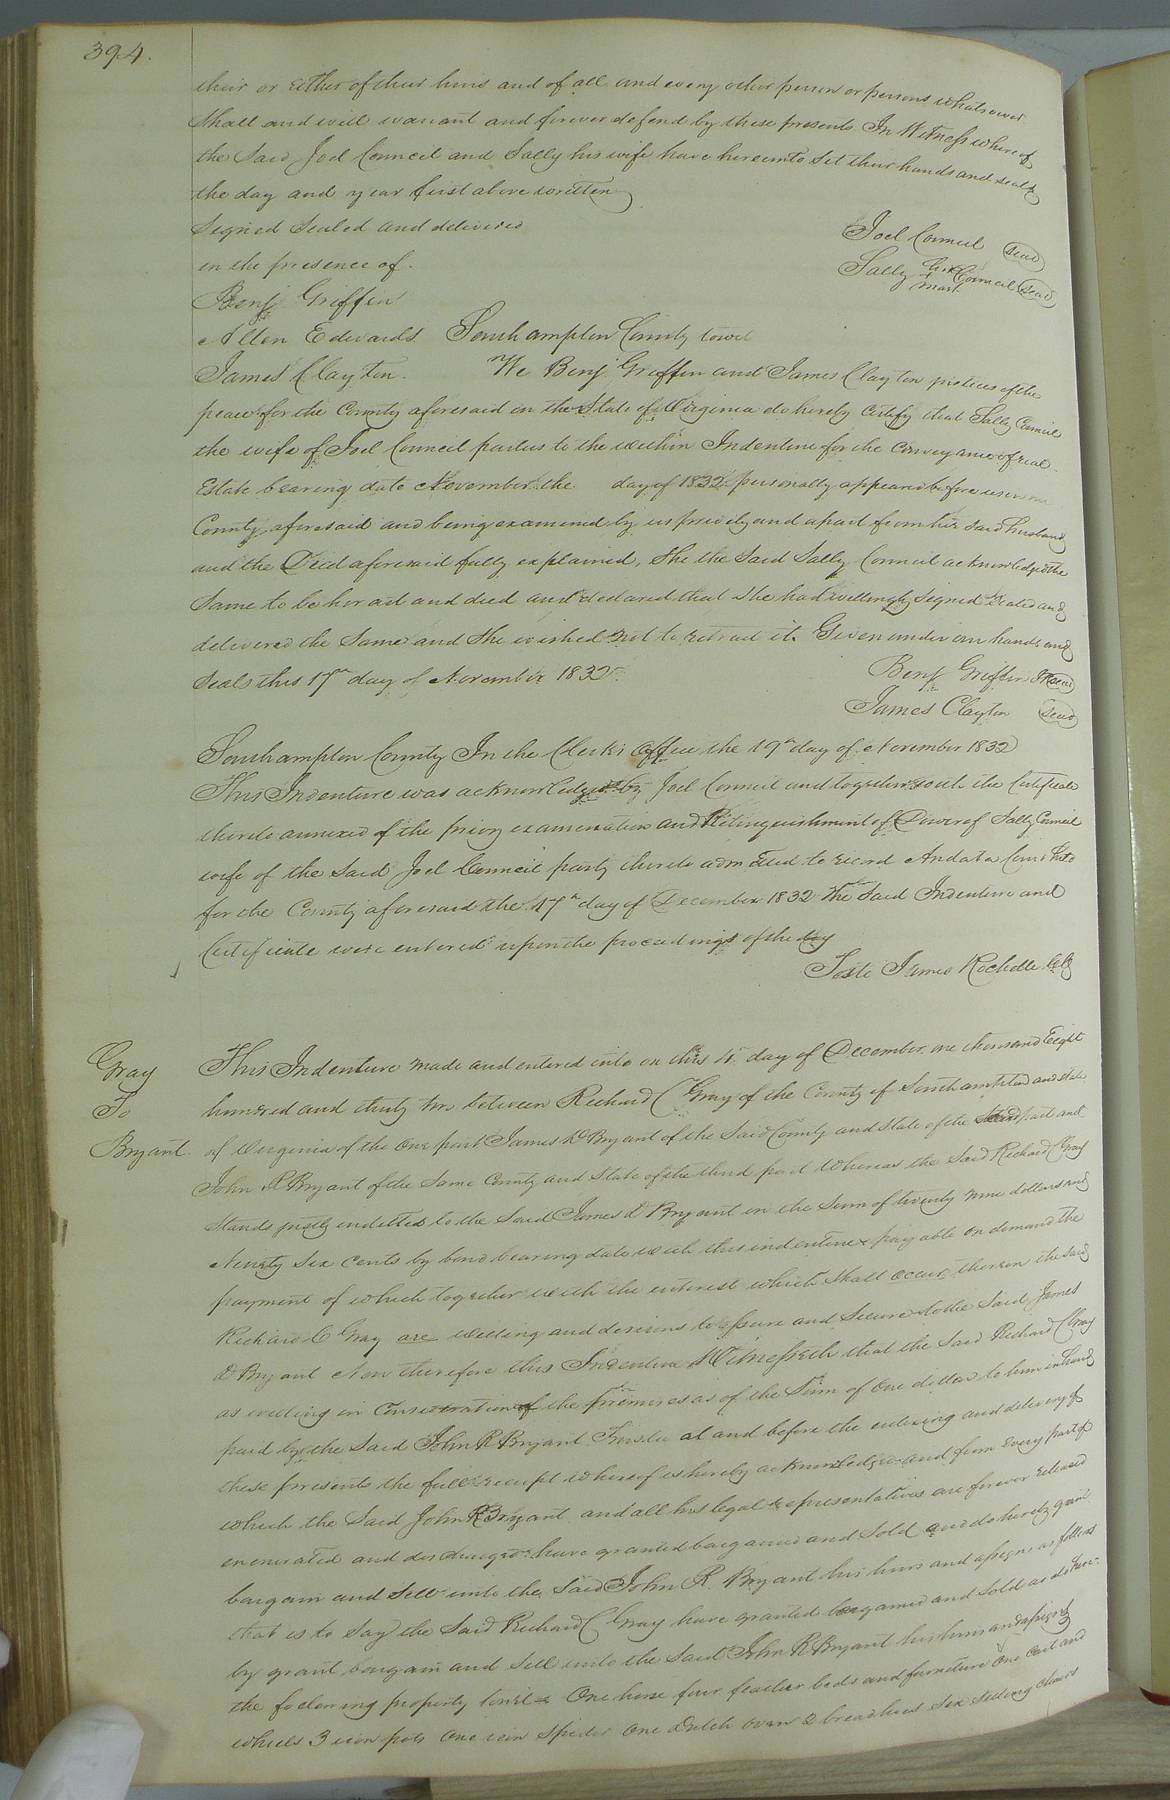 394.
their or either of their heirs and of all and every other person or persons whatsoever
Shall and will warrant and forever defend by these presents. In Witness whereof
the Said Joel Council and Sally his wife have hereunto Set their hands and seals
the day and year first above written
Signed Sealed and delivered
in the presence of.
Joel Council (Seal)
Sally her + mark Council (Seal)
Benj Griffin
Allen Edwards
James Clayton.
Southampton County towit
We Benj Griffin and James Clayton justices of the
peace for the County aforesaid in the State of Virginia do hereby Certify that Sally Council
the wife of Joel Council parties to the within Indenture for the Conveyance of real
Estate bearing date November the day of 1832 personally appeared before us in our
County aforesaid and being examined by us privily and apart from her said husband
and the Deed aforesaid fully explained, She the Said Sally Council acknowledged the
Same to be her act and deed and declared that She had willingly Signed Sealed and
delivered the Same and She wished not to retract it. Given under our hands and
Seals this 17th day of November 1832.
Benj Griffin (Seal)
James Clayton (Seal)
Southampton County In the Clerk's Office the 19th day of November 1832
This Indenture was acknowledged by Joel Council and together with the Certificate
thereto annexed of the privy examination and Relinquishment of Dower of Sally Council
wife of the Said Joel Council party thereto admitted to record And at a Court held
for the County aforesaid the 17th day of December 1832 The Said Indenture and
Certificate were entered upon the proceedings of the day
Teste James Rochelle
Gray
To
Bryant.
This Indenture made and entered into on this 4th day of December, one thousand Eight
hundred and thirty two between Richard C Gray of the County of Southampton and state
of Virginia of the one part James D Bryant of the Said County and State of the part and
John R Bryant of the Same County and State of the third part Whereas the Said Richard C Gray
Stands justly indetted to the Said James D Bryant in the Sum of twenty nine dollars and
Ninety Six Cents by bond bearing date with this indenture payable on demand the
payment of which together with the interest which Shall occur thereon the said
Richard C Gray are willing and desirous to assure and Secure to the Said James
D Bryant Now therefore this Indenture Witnesseth that the Said Richard C Gray
as willing in Consideration of the premises as of the Sum of One dollar to him in hand
paid by the Said John R Bryant Trustee at and before the ensealing and delivery of
these presents the full receipt whereof is hereby acknowledged and from every part of
which the Said John R Bryant and all his legal representatives are forever released
and have granted bargained and Sold and do hereby grant
bargain and Sell unto the Said John R. Bryant his heirs and assigns as follows
that is to Say the Said Richard C Gray have granted bargained and Sold as do here-
by grant bargain and Sell unto the Said John R Bryant his heirs and assigns
the following property towit One horse four feather beds and furniture One Cart and
wheels 3 iron pots One iron Spider One Dutch oven Six Setting Chairs